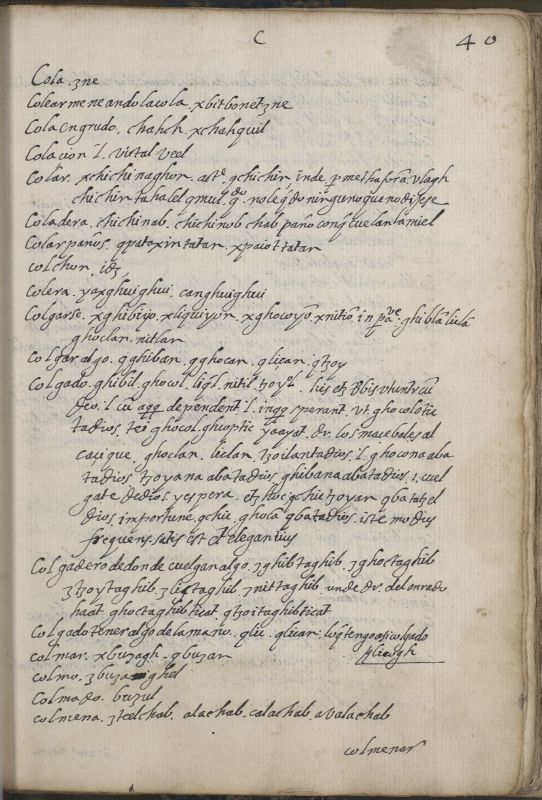 C 40
Cola. ʒne
Colear meneando la cola. xbitbonetʒne
Cola engrudo. chahch. xchahquil
Colacion l. victal veel
Colar. xchichinaghon. act.ͤ qchichin inde p methaforã. vlagh
chichin tahalel qmul. q̃do. nolegᵭo ninguno que no dijese
Coladera. chichinab. chichinob chab paño conq̃ cuelan la miel
Colar paños. qpatoxintatan. xpaiottatan
colchon. idẽ
Colera. yaxghuighui. canghuighui
Colgarse. xghibiyo. xliquiyon. xghowyõ. xnitiõ. in p̃a.ᵛᵉ ghiblã liclã
ghoclan. nitlan
Colgar algo. qghiban. qghocan. qlican. qtʒoy
Colgado. ghibil. ghocol. ligl. nitil. tʒoyol. his etʒ v̄bis vtuntur cũ
deo. l. cũ aqq dependent. l. in qqo sperant. vt. ghocolotic
tadios, teõ ghocol ghuoptic yaayat. dr. los macebales al
caçique, ghoclan, liclan, tʒoilantadios, l. ghocona aba
tadios tʒoyana abatadios, ghibana abatadios, i. cuel
gate de dios, y espera. etʒ hoc qchic tʒoyan qbatatʒel
dios, importune, qchic, ghoca qbatadios, iste modus
frequens satis est et elegantius
Colgadero de donde cuelgan algo. ʒghibtaghib, ʒghoctaghib
ʒtʒoytaghib. ʒlictaghib. ʒnittaghib unde dr. del onrado
haat ghoctaghibticat qtʒoitaghibticat
Colgado tener algo de la mano. qlic. qlican. lo q̃ tengo asi colgado
qlicogh
colmar. xbuʒagh. qbuʒan
colmo. ʒbuʒanghel
Colmado. buʒul
colmena. ʒteelchab. alachab. calachab. avalachab
colmenar